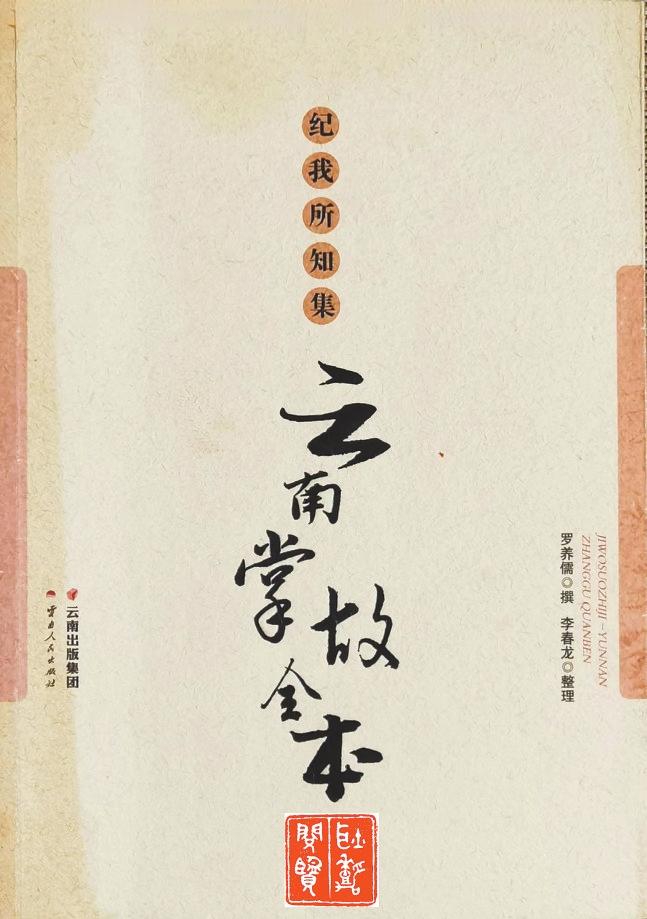 纪我所知集
云南掌故全本
罗养儒◎撰 李春龙◎整理
JIWOSUOZHIJI－YUNNAN
ZHANGGU QUANBEN
云南出版集团
云南人民出版社